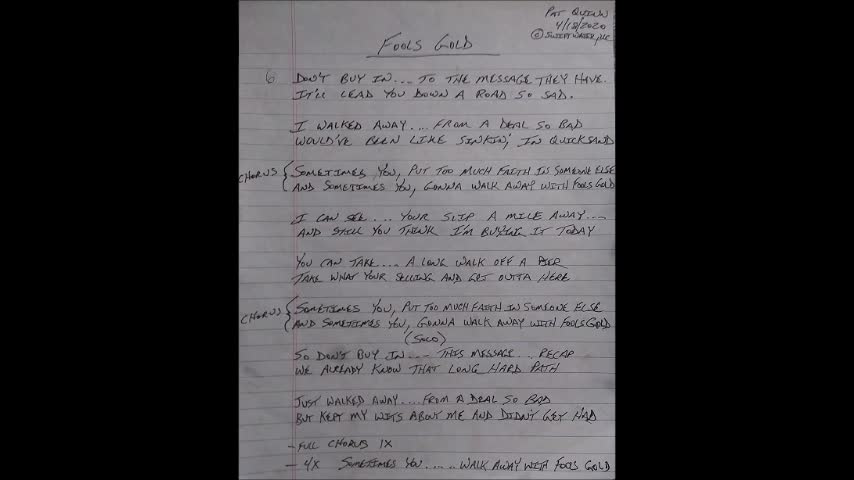 PAT QUINN
4/18/2020
© SWIFTWATER, LLC
FOOLS GOLD
G DON'T BUY IN.... TO THE MESSAGE THEY HAVE.
IT'LL LEAD YOU DOWN A ROAD SO SAD.
I WALKED AWAY.... FROM A DEAL SO BAD
WOULD'VE BEEN LIKE SINKIN' IN QUICKSAND
CHORUS { SOMETIMES YOU, PUT TOO MUCH FAITH IN SOMEONE ELSE
AND SOMETIMES YOU, GONNA WALK AWAY WITH FOOLS GOLD
I CAN SEE.... YOUR SLIP A MILE AWAY....
AND STILL YOU THINK I'M BUYING IT TODAY
YOU CAN TAKE.... A LONG WALK OFF A PIER
TAKE WHAT YOUR SELLING AND GET OUTTA HERE
CHORUS { SOMETIMES YOU, PUT TOO MUCH FAITH IN SOMEONE ELSE
AND SOMETIMES YOU, GONNA WALK AWAY WITH FOOLS GOLD
(SOLO)
SO DON'T BUY IN.... THIS MESSAGE... RECAP
WE ALREADY KNOW THAT LONG HARD PATH
JUST WALKED AWAY.... FROM A DEAL SO BAD
BUT KEPT MY WITS ABOUT ME AND DIDN'T GET HAD
- FULL CHORUS 1X
- 4X SOMETIMES YOU..... WALK AWAY WITH FOOLS GOLD